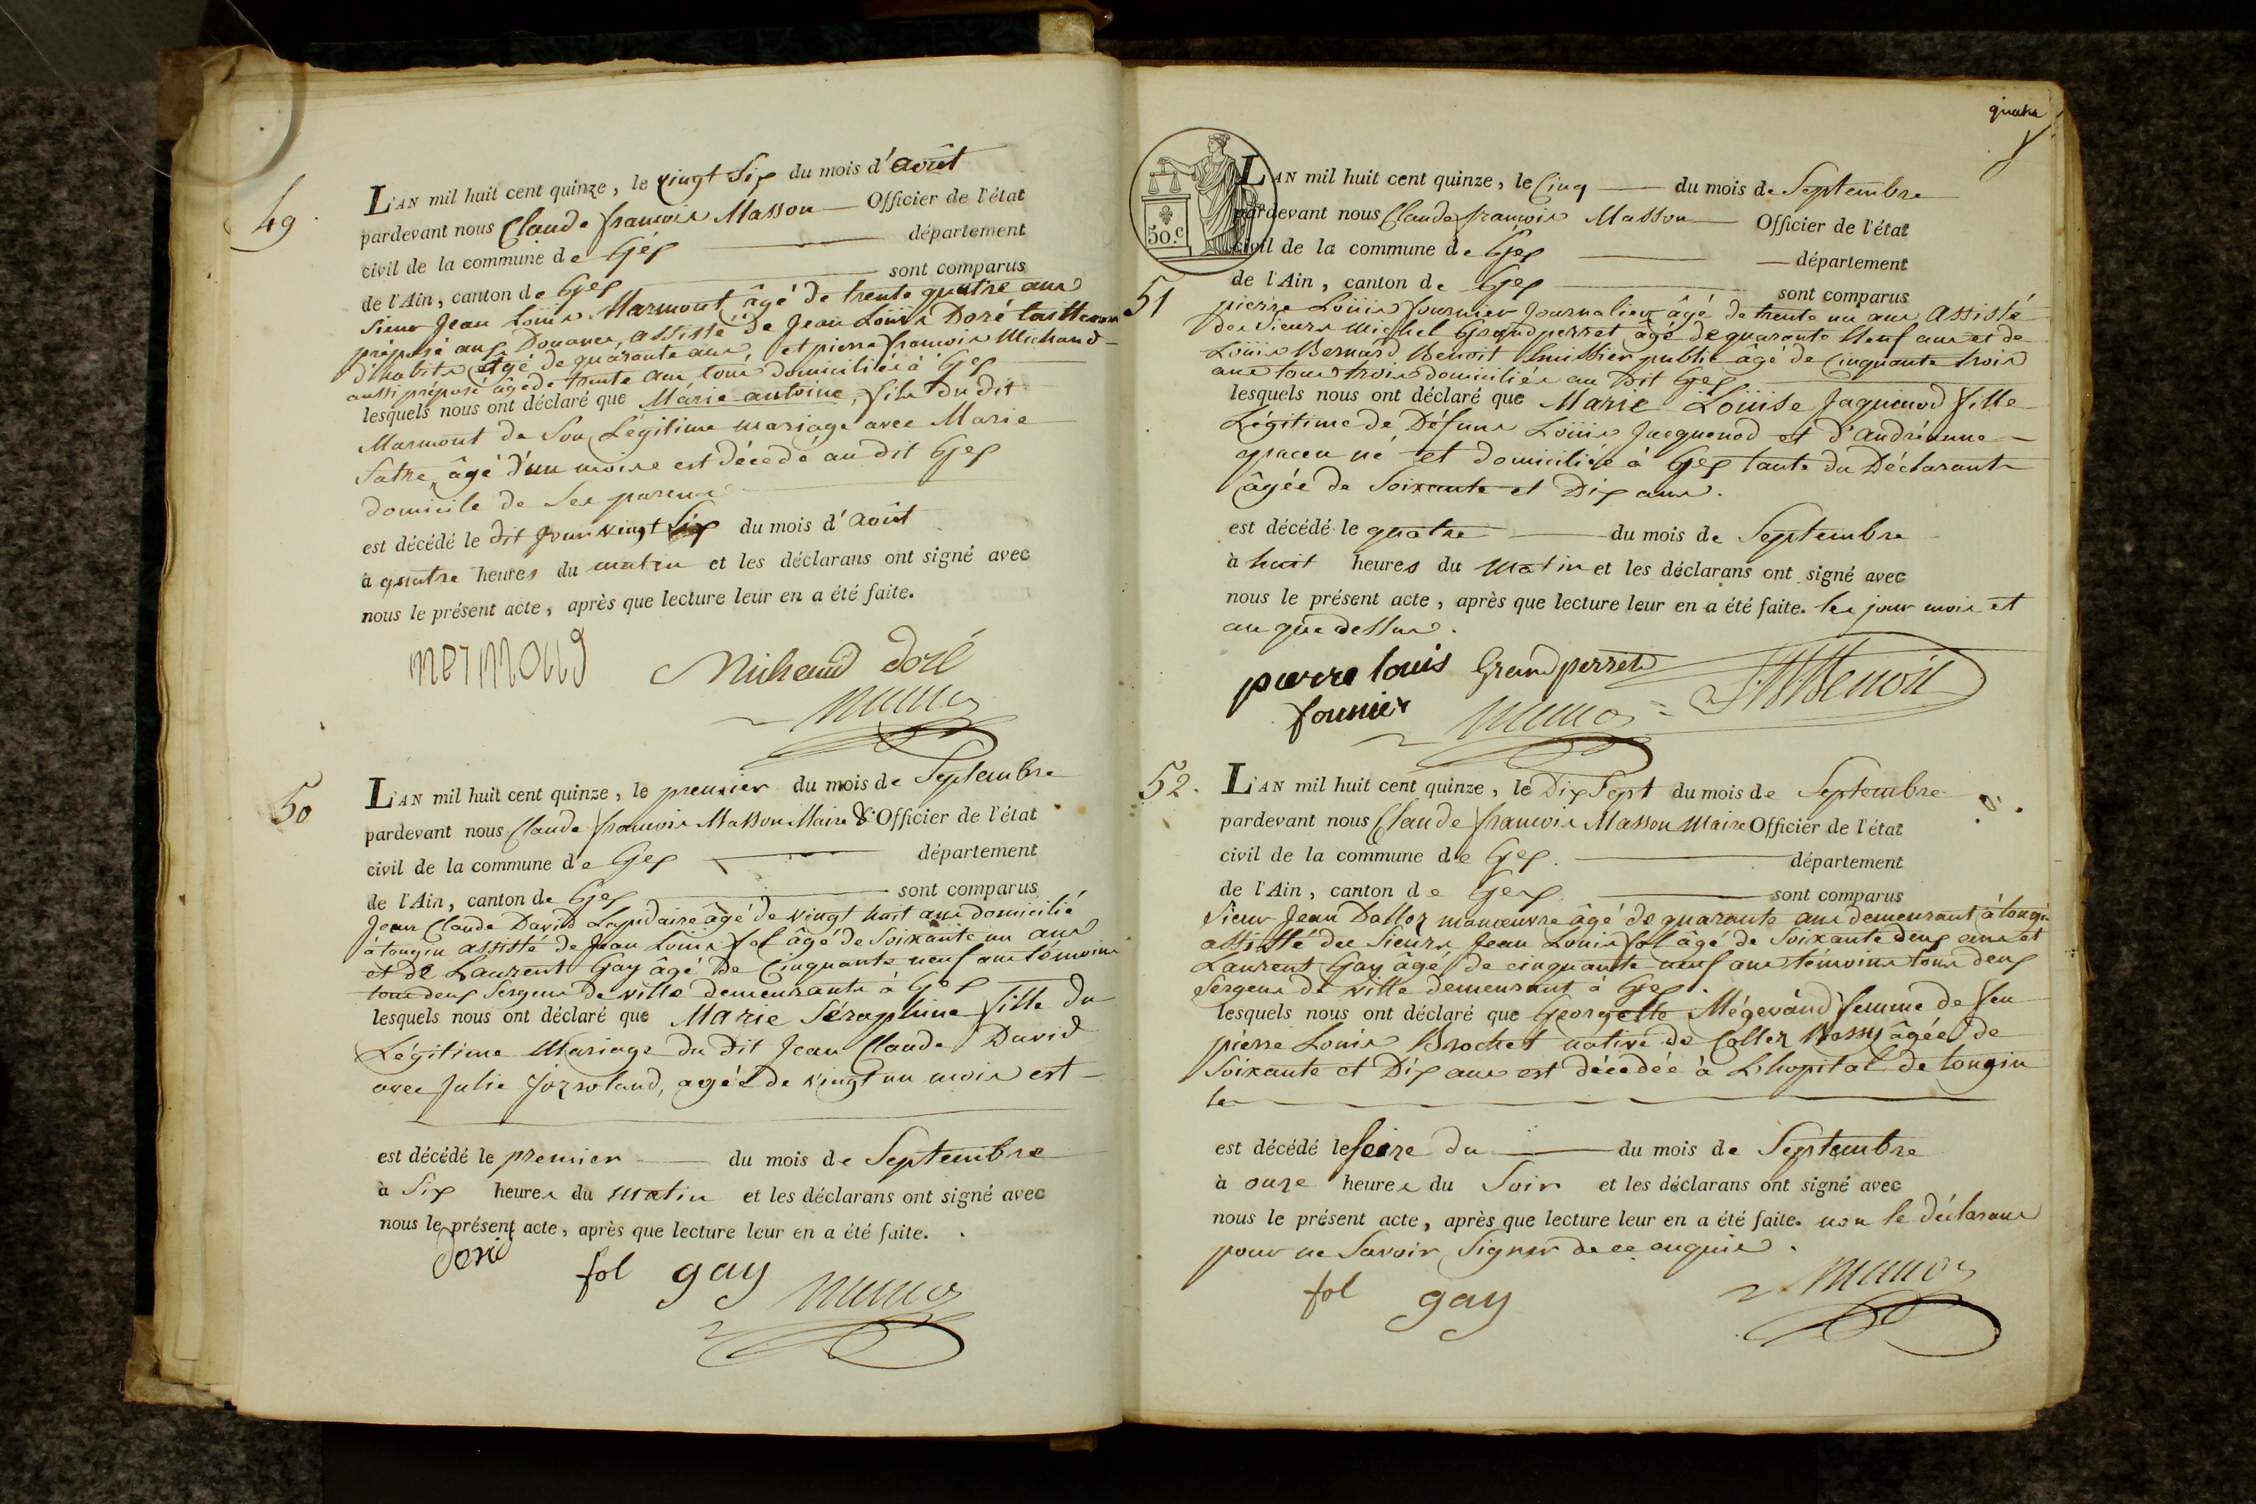 49.
L'AN mil huit cent quinze, le vingt Six du mois d'août
pardevant nous Claude françois Masson Officier de l'état
civil de la commune de Gex département
de l'Ain, canton de Gex sont comparus
Sieur Jean Louis Marmont, âgé de trente quatre ans
préposé aux Douanes, assisté de Jean Louis Doré tailleur
d'habits âgé de quarante ans, et pierre françois Michaud
aussi préposé âgé de trente ans tous domiciliés à Gex
lesquels nous ont déclaré que Marie antoine, fils du dit
Marmont de Son Légitime mariage avec Marie
Satre, âgé d'un mois est décédé au dit Gex
domicile de Ses parens
est décédé le dit Jour vingt Six du mois d'août
à quatre heures du matin et les déclarans ont signé avec
nous le présent acte, après que lecture leur en a été faite.
Michaud doré
50
L'AN mil huit cent quinze, le premier du mois de Septembre
pardevant nous Claude françois Masson Maire & Officier de l'état
civil de la commune de Gex département
de l'Ain, canton de Gex sont comparus
Jean Claude David Lapidaire âgé de vingt huit ans domicilié
à tougin assisté de Jean Louis fol âgé de Soixante un ans
et de Laurent Gay âgé de Cinquante neuf ans témoins
tous deux Sergens de ville demeurants à Gex
lesquels nous ont déclaré que Marie Séraphine fille du
Légitime Mariage du dit Jean Claude David
avec Julie, agée de vingt un mois est
est décédé le premier du mois de Septembre
à Six heures du matin et les déclarans ont signé avec
nous le présent acte, après que lecture leur en a été faite.
david
fol gay
quatre
50.C
L'AN mil huit cent quinze, le Cinq du mois de Septembre
pardevant nous Claude françois Masson Officier de l'état
civil de la commune de Gex département
de l'Ain, canton de Gex sont comparus
51
pierre Louis fournier Journalier âgé de trente un ans Assisté
des Sieurs Michel Grandperret âgé de quarante Neuf ans et de
Louis Bernard Benoit huissier public âgé de Cinquante trois
ans tous trois domiciliés au dit Gex
lesquels nous ont déclaré que Marie Louise Jaquenod fille
Légitime de Défuns Louis Jacquenod et d'andréanne
né et domiciliée à Gex tante du Déclarant
âgée de Soixante et Dix ans.
est décédé le quatre du mois de Septembre
à huit heures du matin et les déclarans ont signé avec
nous le présent acte, après que lecture leur en a été faite. les jour mois et
an que dessus.
pierre louis Grandperret
fournier Benoit
52.
L'AN mil huit cent quinze, le Dix Sept du mois de Septembre
pardevant nous Claude françois Masson Maire Officier de l'état
civil de la commune de Gex département
de l'Ain, canton de Gex sont comparus
Sieur Jean Dalloz manœuvre âgé de quarante ans demeurant à tougin
assisté des Sieurs Jean Louis fol âgé de Soixante deux ans et
Laurent Gay âgé de cinquante neuf ans témoins tous deux
Sergens de ville demeurant à Gex.
lesquels nous ont déclaré que Georgette Mégevand femme de feu
pierre Louis Brochet native de Collex Bossy âgée de
Soixante et Dix ans est décédée à L'hopital de tougin
le
est décédé le Seize du du mois de Septembre
à onze heures du Soir et les déclarans ont signé avec
nous le présent acte, après que lecture leur en a été faite. non le déclarant
pour ne Savoir Signer de ce enquis.
fol gay